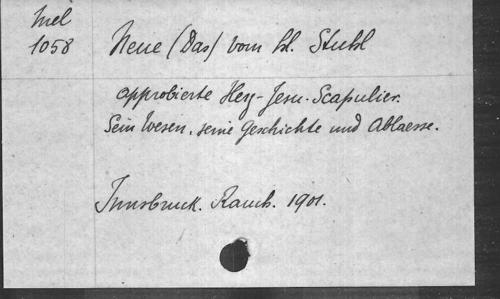 Mel
1058
Neue (Das) vom hl. Stuhl
approbierte Herz-Jesu-Scapulier.
Sein Wesen, seine Geschichte und Ablaesse.
Innsbruck. Rauch. 1901.